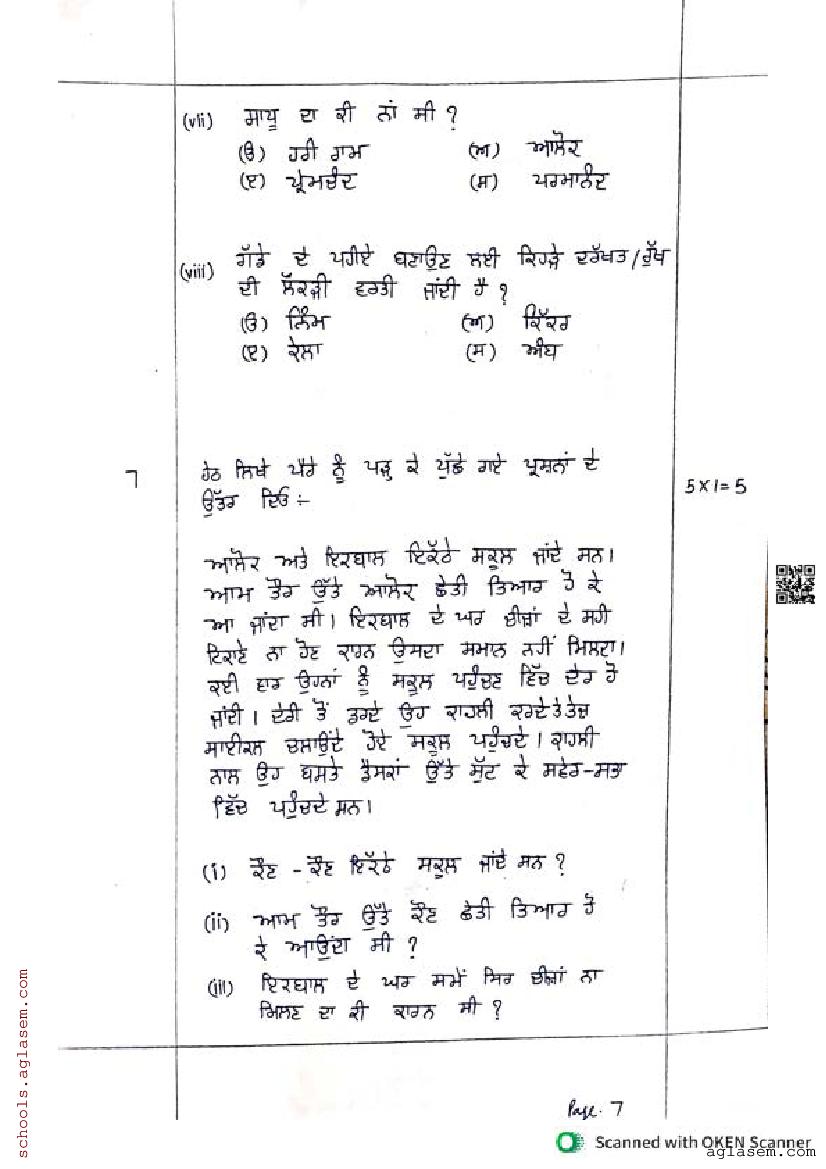 (vii) ਸਾਧੂ ਦਾ ਕੀ ਨਾਂ ਸੀ ?
(ੳ) ਹਰੀ ਰਾਮ (ਅ) ਆਲੋਕ
(ੲ) ਪ੍ਰੇਮਚੰਦ (ਸ) ਪਰਮਾਨੰਦ
(viii) ਗੱਡੇ ਦੇ ਪਹੀਏ ਬਣਾਉਣ ਲਈ ਕਿਹੜੇ ਦਰੱਖਤ/ਰੁੱਖ
ਦੀ ਲੱਕੜੀ ਵਰਤੀ ਜਾਂਦੀ ਹੈ ?
(ੳ) ਨਿੰਮ (ਅ) ਕਿੱਕਰ
(ੲ) ਕੇਲਾ (ਸ) ਅੰਬ
7 ਹੇਠ ਲਿਖੇ ਪੈਰੇ ਨੂੰ ਪੜ੍ਹ ਕੇ ਪੁੱਛੇ ਗਏ ਪ੍ਰਸ਼ਨਾਂ ਦੇ 5X1=5
ਉੱਤਰ ਦਿਓ :-
ਆਲੋਕ ਅਤੇ ਇਕਬਾਲ ਇਕੱਠੇ ਸਕੂਲ ਜਾਂਦੇ ਸਨ।
ਆਮ ਤੌਰ ਉੱਤੇ ਆਲੋਕ ਛੇਤੀ ਤਿਆਰ ਹੋ ਕੇ
ਆ ਜਾਂਦਾ ਸੀ। ਇਕਬਾਲ ਦੇ ਘਰ ਚੀਜ਼ਾਂ ਦੇ ਸਹੀ
ਟਿਕਾਣੇ ਨਾ ਹੋਣ ਕਾਰਨ ਉਸਦਾ ਸਮਾਨ ਨਹੀਂ ਮਿਲਦਾ।
ਕਈ ਵਾਰ ਉਹਨਾਂ ਨੂੰ ਸਕੂਲ ਪਹੁੰਚਣ ਵਿੱਚ ਦੇਰ ਹੋ
ਜਾਂਦੀ। ਦੇਰੀ ਤੋਂ ਡਰਦੇ ਉਹ ਕਾਹਲੀ ਕਰਦੇ ਤੇ ਤੇਜ਼
ਸਾਈਕਲ ਚਲਾਉਂਦੇ ਹੋਏ ਸਕੂਲ ਪਹੁੰਚਦੇ। ਕਾਹਲੀ
ਨਾਲ ਉਹ ਬਸਤੇ ਡੈਸਕਾਂ ਉੱਤੇ ਸੁੱਟ ਕੇ ਸਵੇਰ-ਸਭਾ
ਵਿੱਚ ਪਹੁੰਚਦੇ ਸਨ।
(i) ਕੌਣ - ਕੌਣ ਇਕੱਠੇ ਸਕੂਲ ਜਾਂਦੇ ਸਨ ?
(ii) ਆਮ ਤੌਰ ਉੱਤੇ ਕੌਣ ਛੇਤੀ ਤਿਆਰ ਹੋ
ਕੇ ਆਉਂਦਾ ਸੀ ?
(iii) ਇਕਬਾਲ ਦੇ ਘਰ ਸਮੇਂ ਸਿਰ ਚੀਜ਼ਾਂ ਨਾ
ਮਿਲਣ ਦਾ ਕੀ ਕਾਰਨ ਸੀ ?
Page. 7
Scanned with OKEN Scanner
schools.aglasem.com
aglasem.com